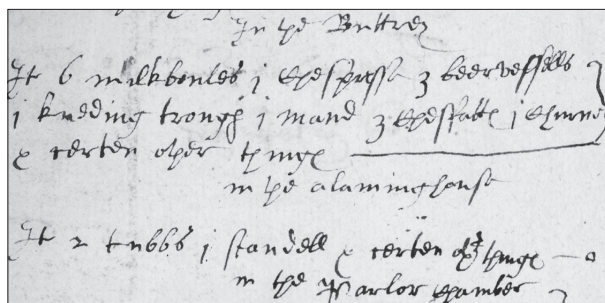 In the Buttrey
It 6 milkboules j chespresse 3 beervessells
j kneding trough j mand 3 chesfatts j churne
& certen other things
in the
It 2 tubbs j standell & certen othr things
in the Parlor chamber